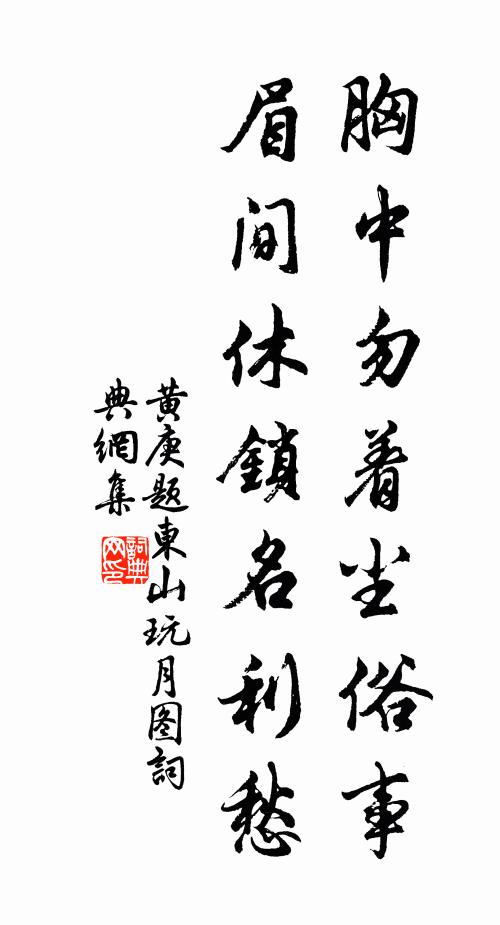 胸中勿着尘俗事
眉间休鎖名利愁
黄庚题東山玩月图詞
典網集
詞典
网印